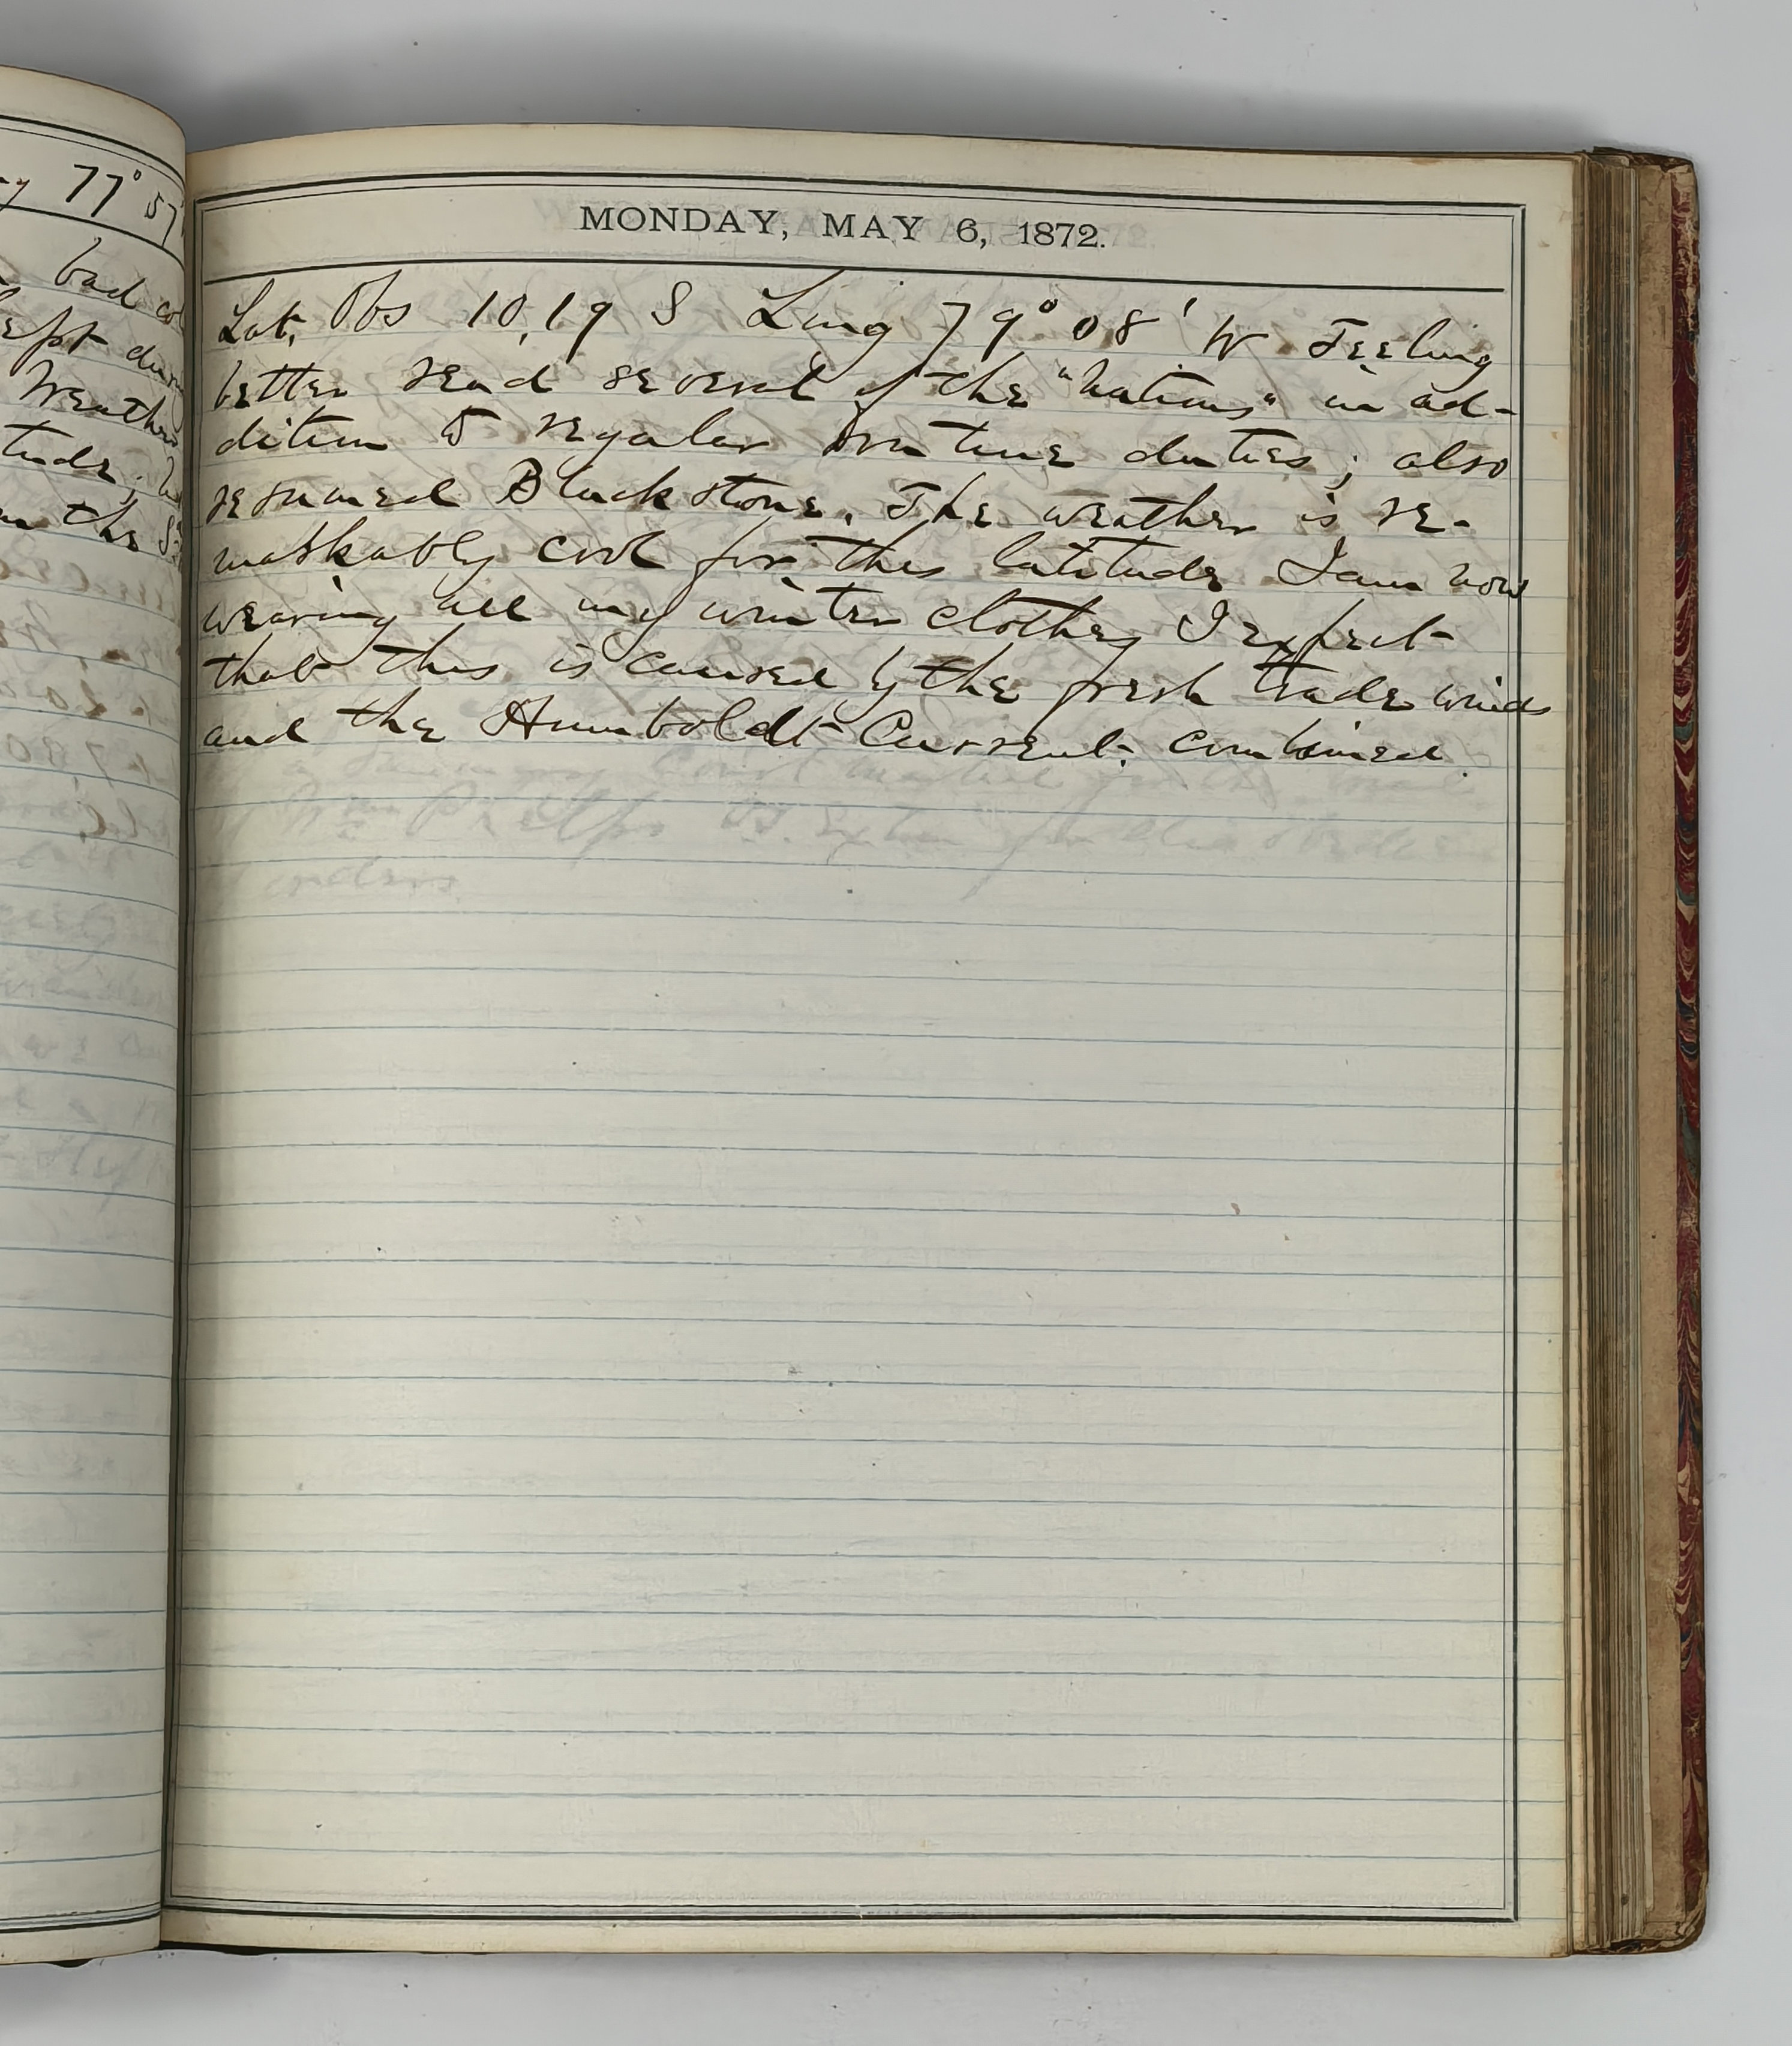 77° 57'
bad
Weather
tude;
in the
MONDAY, MAY 6, 1872.
Lat. Obs 10,19 S Long 79° 08' W Feeling
better read several of the "Nations" in ad-
dition to regular routine duties; also
resumed Blackstone. The weather is re-
markably cool for this latitude I am now
wearing all my winter clothes I expect
that this is caused by the fresh trade winds
and the Humboldt Current combined.
orders